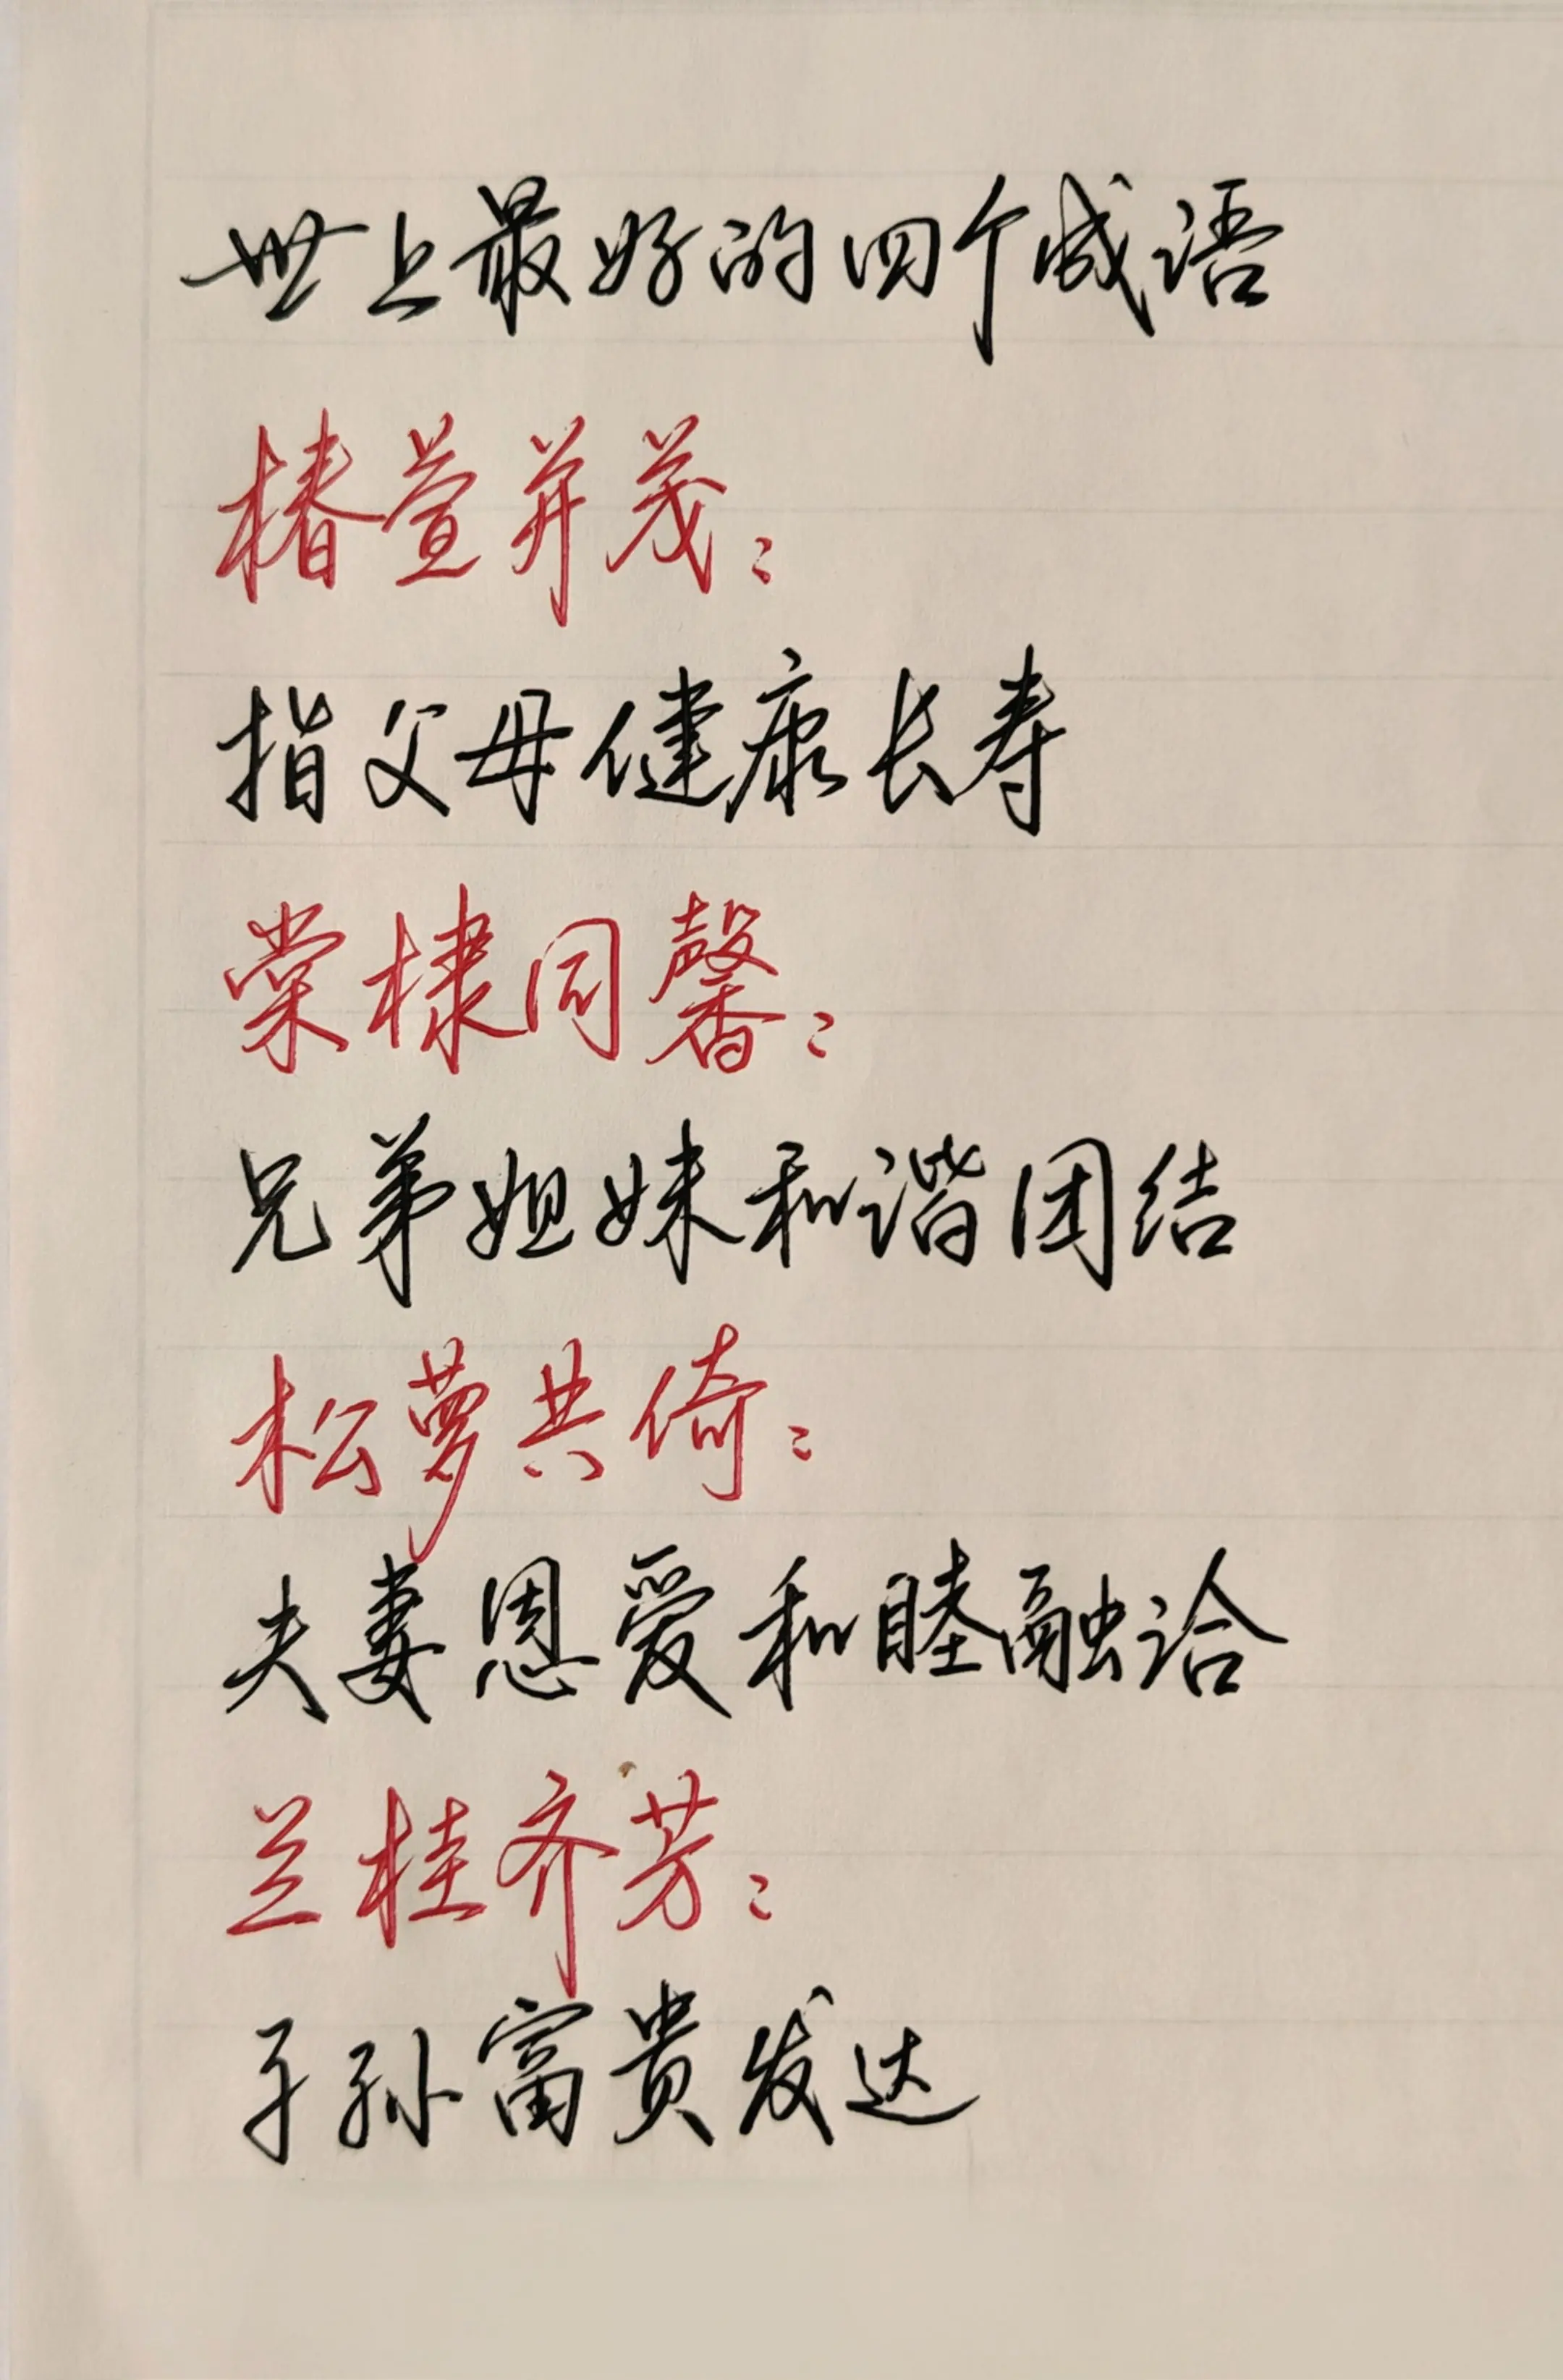 世上最好的四个成语
椿萱并茂：
指父母健康长寿
棠棣同馨：
兄弟姐妹和谐团结
松萝共倚：
夫妻恩爱和睦融洽
兰桂齐芳：
子孙富贵发达